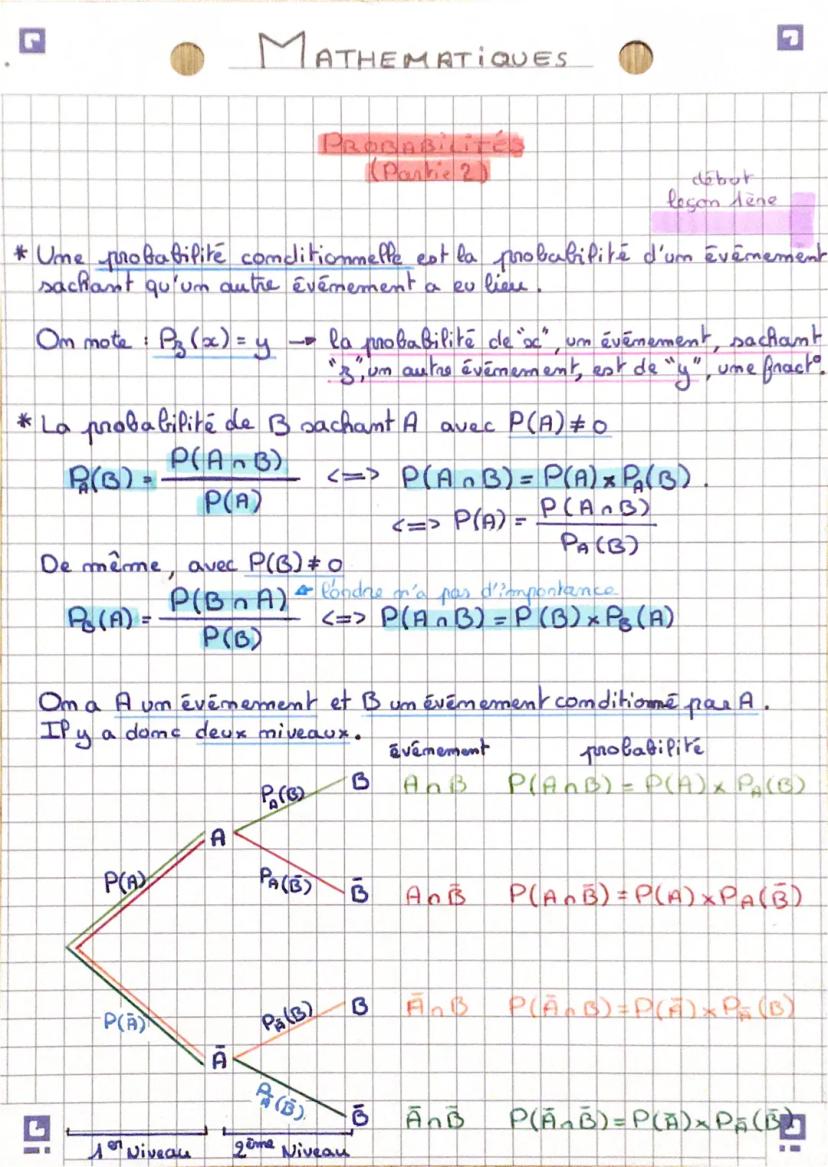 MATHEMATIQUES
PROBABILITÉS
(Partie 2)
début
leçon 1ène
* Une probabilité conditionnelle est la probabilité d'un événement
sachant qu'un autre événement a eu lieu.
On note : P₃(x) = y → la probabilité de "x", un événement, sachant
"z", un autre événement, est de "y", une fract°.
* La probabilité de B sachant A avec P(A) ≠ 0
P_A(B) = P(A∩B) / P(A) <=> P(A∩B) = P(A) × P_A(B).
<=> P(A) = P(A∩B) / P_A(B)
De même, avec P(B) ≠ 0
l'ordre n'a pas d'importance
P_B(A) = P(B∩A) / P(B) <=> P(A∩B) = P(B) × P_B(A)
On a A un événement et B un événement conditionné par A.
Il y a donc deux niveaux.
événement probabilité
P_A(B) B A∩B P(A∩B) = P(A) × P_A(B)
P(A) A
P_A(B̄) B̄ A∩B̄ P(A∩B̄) = P(A) × P_A(B̄)
P(Ā) Ā
P_Ā(B) B Ā∩B P(Ā∩B) = P(Ā) × P_Ā(B)
P_Ā(B̄) B̄ Ā∩B̄ P(Ā∩B̄) = P(Ā) × P_Ā(B̄)
1er Niveau 2ème Niveau